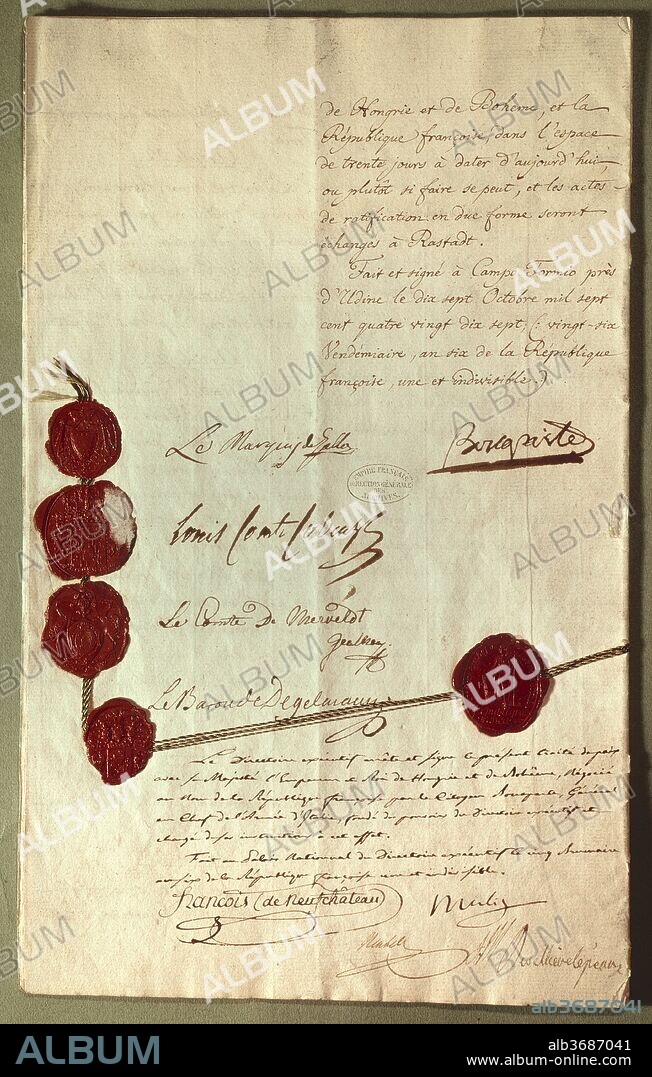 de Hongrie et de Bohême, et la
République françoise, dans l'espace
de trente jours à dater d'aujourd'hui,
ou plutôt si faire se peut, et les actes
de ratification en due forme seront
échangés à Rastadt.
Fait et signé à Campo Formio près
d'Udine le dix sept Octobre mil sept
cent quatre vingt dix sept; (: vingt-six
Vendémiaire, an six de la République
françoise, une et indivisible :)
Le Marquis de Gallo
Bonaparte
EMPIRE FRANÇAIS
DIRECTION GÉNÉRALE
DES
ARCHIVES.
Louis Comte Cobenzl
Le Comte De Merveldt
Le Baron de Degelmann
Le Directoire exécutif arrête et signe le présent traité de paix
avec sa Majesté l'Empereur et Roi de Hongrie et de Bohême, Négocié
au Nom de la République française par le Citoyen Bonaparte, Général
en Chef de l'Armée d'Italie, fondé de pouvoirs du Directoire exécutif et
chargé de ses instructions à cet effet.
Fait au Palais National du Directoire exécutif le cinq Brumaire
an six de la République française une et indivisible.
François (de Neufchâteau)
Merlin
ALBUM
alb3687041
ALBUM
alb3687041
www.album-online.com